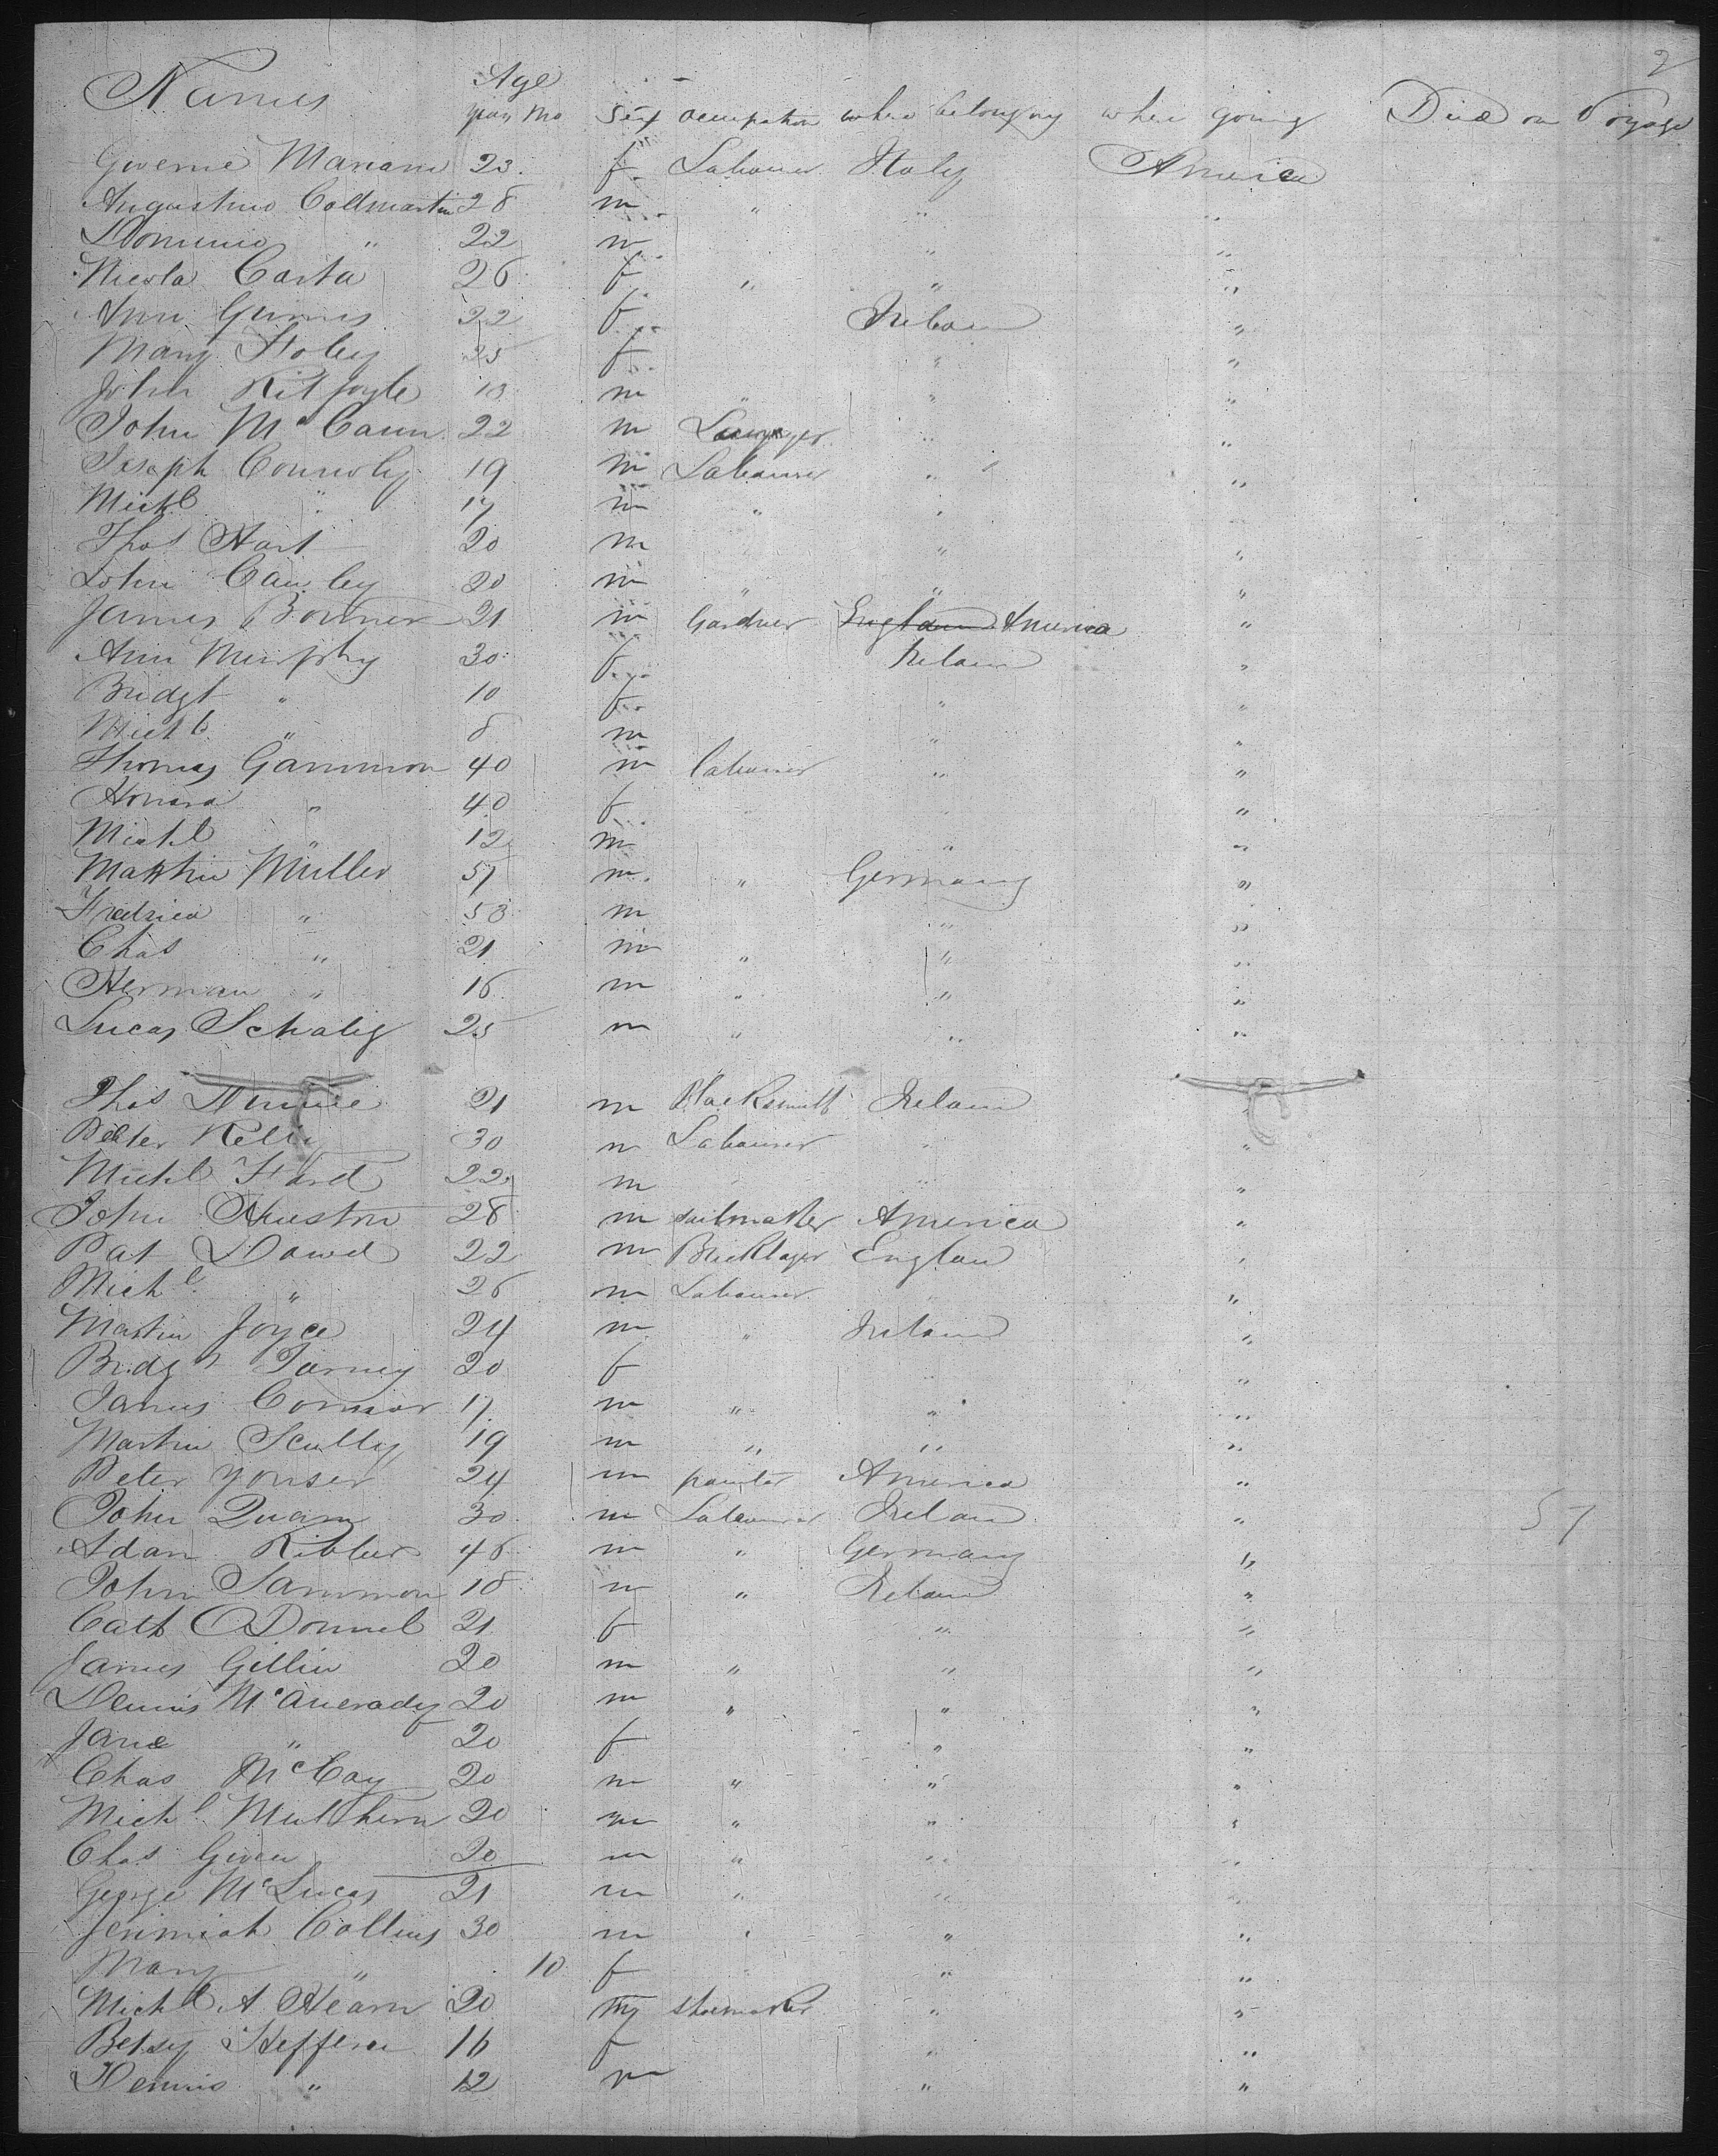 2
Names Age years Mo Sex Occupation where belonging where going Died on Voyage
Mariani 23 f Labourer Italy America
Augustino Coldmartin 28 m " " "
Dominic " 22 m " "
Nicola Costa 26 f " " "
Ann 22 f Ireland "
Mary Foley 25 f " "
John 18 m " " "
John McCann 22 m " "
Joseph Connoly 19 m Labourer " "
Michl " 17 m " "
Thos Hart 20 m " "
John Cauley 20 m " " "
James Bonner 21 m Gardner England America "
Ann Murphy 30 f Ireland "
Bridgt " 10 f " "
Michl " 8 m " "
Thomas Gammon 40 m labourer " "
Honora " 40 f "
Michl " 12 m " "
Matthew Muller 51 m " Germany "
Fredrica " 53 m " "
Chas " 21 m " " "
Herman " 16 m " " "
Lucas Schaly 25 m " " "
Thos 21 m Blacksmith Ireland "
Peter Kelly 30 m Labourer " "
Michl Ford 22 m "
John Huston 28 m sailmaker America "
Pat Dowd 22 m Bricklayer Englan "
Michl " 26 m Labourer "
Martin Joyce 24 m " Ireland "
Bridgt Tarney 20 f " "
James Connor 17 m " " "
Martin Scully 19 m " " "
Peter Yonser 24 m painter America "
John Quann 30 m Labourer Ireland " 57
Adam 46 m " Germany "
John Sammon 18 m " Ireland "
Cath ODonnel 21 f " "
James Gillin 20 m " " "
Dennis 20 m " " "
Jane " 20 f " "
Chas McCay 20 m " " "
Michl Mulhern 20 m " " "
Chas Given 20 m " " "
George McLucas 21 m " " "
Jerimiah Collins 30 m " " "
Mary " 10 f " "
Michl A Hearn 20 m shoemaker " "
Betsy Heffern 16 f " "
Dennis " 12 m " "